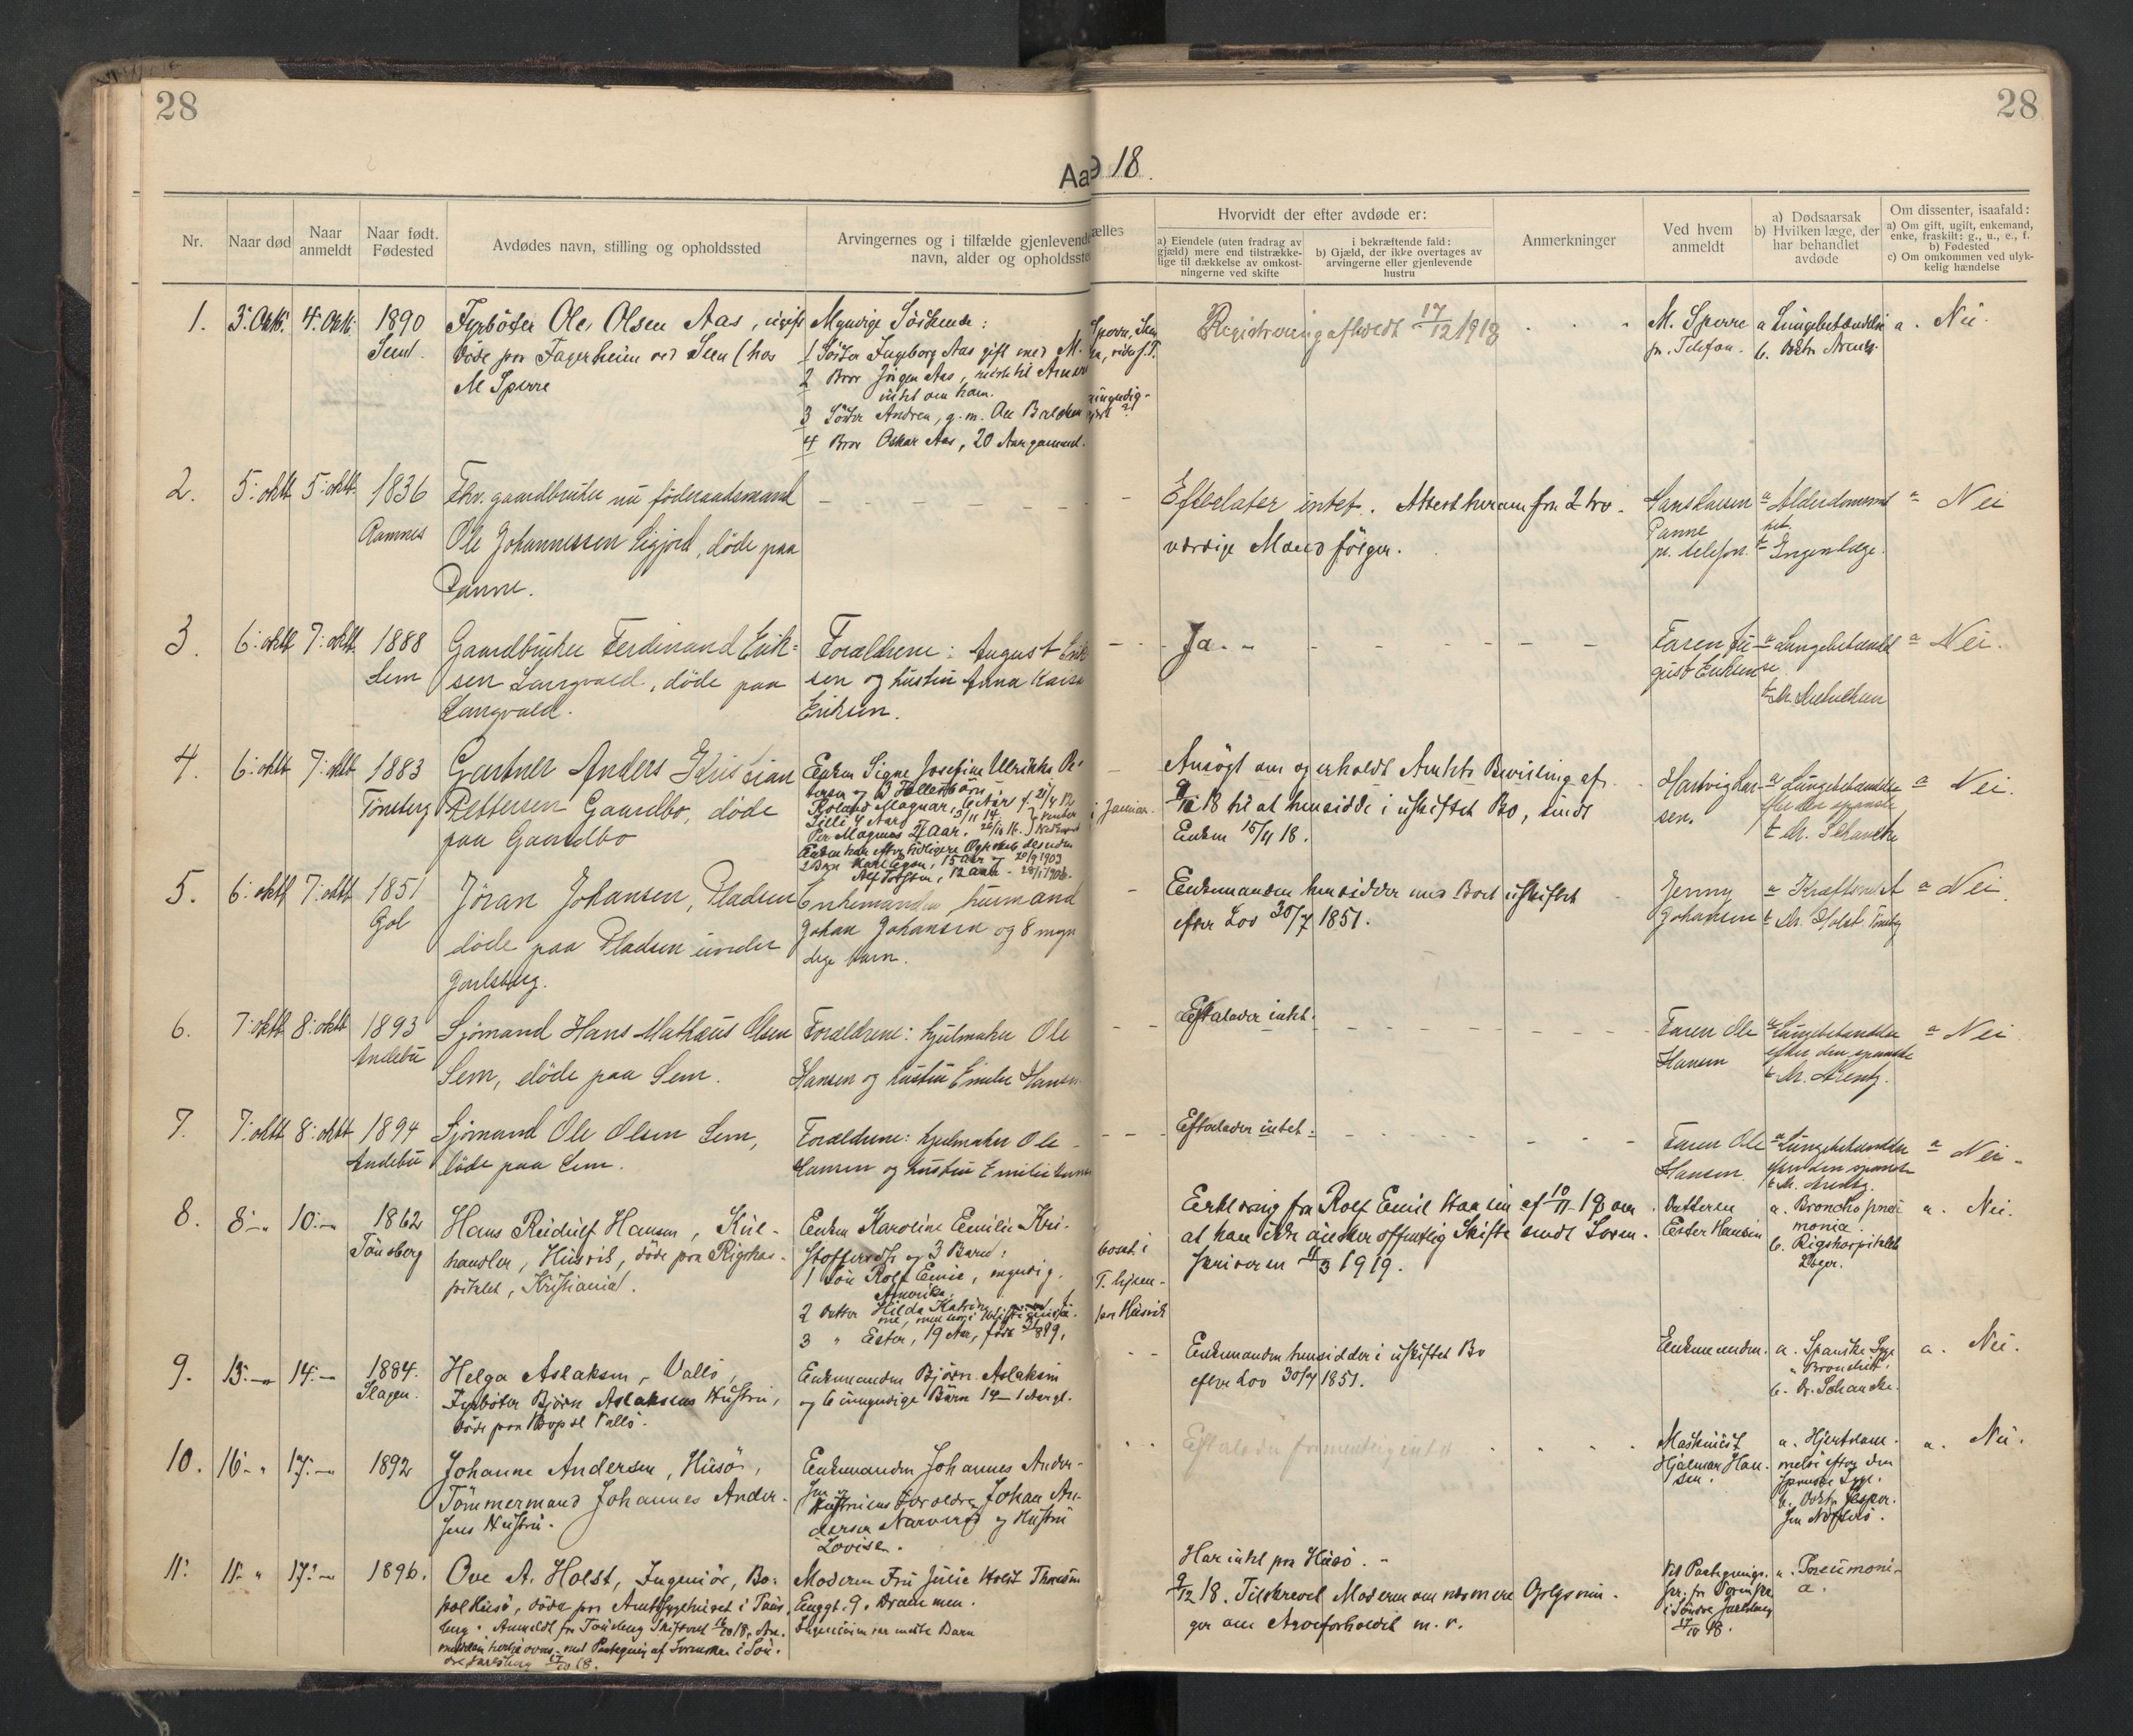 28
28
Aa
18.
Nr.
Naar død
Naar anmeldt
Naar født. Fødested
Avdødes navn, stilling og opholdssted
Arvingernes og i tilfælde gjenlevende
navn, alder og opholdsste
ælles
Hvorvidt der efter avdøde er:
a) Eiendele (uten fradrag av
gjæld) mere end tilstrække-
lige til dækkelse av omkost-
ningerne ved skifte
i bekræftende fald:
b) Gjæld, der ikke overtages av
arvingerne eller gjenlevende
hustru
Anmerkninger
Ved hvem
anmeldt
a) Dødsaarsak
b) Hvilken læge, der
har behandlet
avdøde
Om dissenter, isaafald:
a) Om gift, ugift, enkemand,
enke, fraskilt: g., u., e., f.
b) Fødested
c) Om omkommen ved ulyk-
kelig hændelse
1. 3. Okt. 4. Okt. 1890
Sem.
Fyrbøter Ole Olsen Aas, ugift
døde paa Fagerheim ved Sem (hos
M Sperre
Myndige Söskende:
1 Söster Ingeborg Aas gift med M.
2 Bror Jörgen Aas, reiste til Amer
intet om ham.
3 Söster Andrea, g. m.
4 Bror Oskar Aas, 20 Aar gammel.
Registrering afholdt 17/12 1918
M. Sperre
pr. Telefon.
a Lungebetændelse
b. Doktor Arentz.
a. Nei
2. 5. oktb 5. oktb. 1836
Ramnes
Fhv. gaardbruker nu föderaadsmand
Ole Johannessen Gigjord, døde paa
Panne.
Efterlater intet. Attest herom fra 2 tro-
værdige Mænd følger.
Hans Larsen
Panne
pr. telefon.
a Alderdomssvak
het
b Ingen læge.
a Nei
3. 6. oktb 7. oktb. 1888
Sem
Gaardbruker Ferdinand Erik-
sen Langvald, døde paa
Langvald.
Forældrene: August Erik
sen og hustru Anna Karin
Eriksen.
Ja.
Faren Au-
gust Eriksen
a Lungebetændel
se
a Nei.
4. 6. oktb 7. oktb 1883
Tönsberg
Gartner Anders Kristian
Pettersen Gaardbo, døde
paa Gaardbo
Enken Signe Josefine Ullrikke Pe-
tersen og 3 Fellesbørn
Roland Magnar, 6 Aar f. 21/4 12
Lilli 4 Aar, 3/11 14
Per Magnus 2 Aar. 26/10 16.
Enken har efter tidligere Egteskab desuden
2 Børn Karl Egon, 15 Aar 20/9 1903
Alf Torsten, 12 Aar - 28/1 1906.
Ansögt om og erholdt Amtets Bevilling af
18 til at hensidde i uskiftet Bo, sendt
Enken 15/11 18.
Hartvig Lar-
sen.
a Lungebetændelse
efter den spanske
b Dr. Schancke
a Nei.
5. 6. oktb 7. oktb 1851
Gol
Jöran Johansen, Pladsen
døde paa Pladsen under
Jarlsberg.
Enkemanden, husmand
Johan Johansen og 8 myn
dige barn.
Enkemanden hensidder med Boet uskiftet
efter Lov 30/7 1851.
Jenny
Johansen
a Kræftsvulst
b Dr. Holst Tönsberg
a Nei
6. 7. oktb 8. oktb 1893
Andebu
Sjömand Hans Mathæus Olsen
Sem, døde paa Sem.
Forældrene: hjulmaker Ole
Hansen og hustru Emilie Hansen
Efterlader intet.
Faren Ole
Hansen
a Lungebetændelse
efter den spanske
b Dr. Arentz.
a Nei
7. 7. oktb 8. oktb 1894
Andebu
Sjömand Ole Olsen Sem,
døde paa Sem.
Forældrene: hjulmaker Ole
Hansen og hustru Emilie Hansen
Efterlader intet.
Faren Ole
Hansen.
a Lungebetændelse
efter den spanske
b Dr. Arentz.
a Nei.
8. 8. 10. 1862
Tönsberg
Hans Rudulf Hansen, Kul-
handler, Husvik, døde paa Rigshos-
pitalet, Kristiania.
Enken Karoline Emilie Kri-
stoffersdtr og 3 Barn:
1 Sön Rolf Emil, myndig,
Amerika,
2 Datter Hilda Katrine
3 " Ester, 19 Aar, født 1899,
bosat i
T. hjem-
paa Husvik
Erklæring fra Rolf Emil Hansen af 10/11 18 om
at han ikke önsker offentlig Skifte sendt Soren-
skriveren 11/3 1919.
Datteren
Ester Hansen
a. Broncho pneu
monia
b. Rigshospitalets
Læger.
a. Nei.
9. 13. 14. 1884.
Slagen.
Helga Aslaksen, Vallö,
Fyrböter Björn Aslaksens Hustru,
døde paa Bopæl Vallö.
Enkemanden Björn Aslaksen
og 6 umyndige Börn 14-1 Aar gl.
Enkemanden hensidder i uskiftet Bo
efter Lov 30/7 1851.
Enkemanden.
a. Spanske Syge
" Bronchit.
b. Dr. Schancke.
a. Nei.
10. 16. 17. 1892
Johanne Andersen, Husö,
Tömmermand Johannes Ander-
sens Hustru.
Enkemanden Johannes Ander-
sen og
Hustruens Forældre Johan An-
dersen Narverød og Hustru
Lovise.
Efterlader formentlig intet
Maskinist
Hjalmar Han-
sen.
a. Hjertelam-
melse efter den
spanske Syge.
b. Doktor Jesper-
sen Nötterö.
a. Nei.
11. 11. 17. 1896.
Ove A. Holst, Ingeniör, Bo-
pæl Husö, døde paa Amtssygehuset i Töns-
berg. Anmeldt fra Tönsberg Skifteret
Moderen Fru Julie Holst Thoresen
Enggt. 9, Drammen.
Ingeniören var eneste Barn
Har intet paa Husö.
9/12 18. Tilskrevet Moderen om nærmere Oplysnin-
ger om Arveforholdet m. v.
a. Pneumoni-
a.